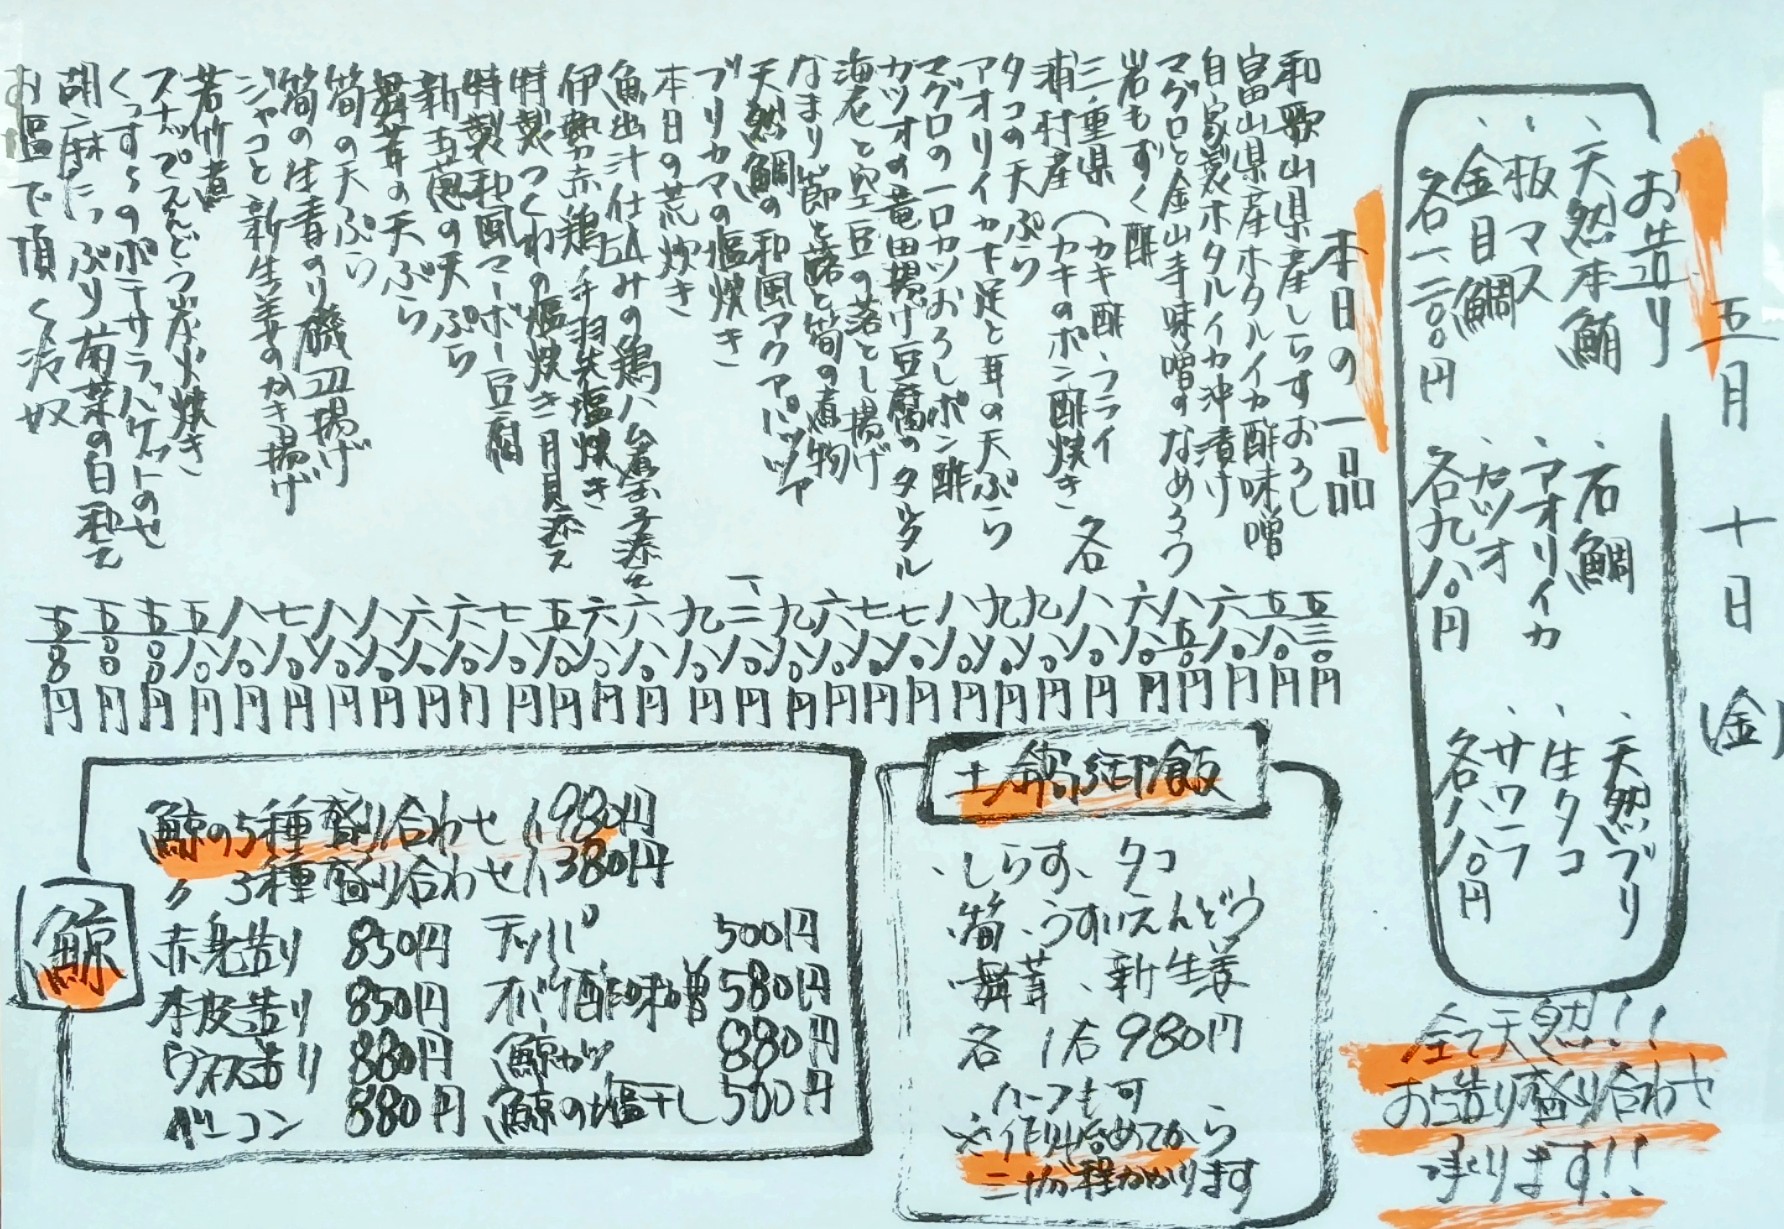 五月十日(金)
お造り
、天然本鮪
、板マス
、金目鯛
各一、二〇〇円
、石鯛
、アオリイカ
、カツオ
各九八〇円
、天然ブリ
、生タコ
、サワラ
各八八〇円
全て天然!!
お造り盛り合わせ
承ります!!
本日の一品
和歌山県産しらすおろし 五三〇円
富山県産ホタルイカ酢味噌 五八〇円
自家製ホタルイカ沖漬け 六八〇円
マグロと金山寺味噌のなめろう 八五〇円
岩もずく酢 六八〇円
三重県(カキ酢、フライ
浦村産(カキのポン酢焼き 各 八八〇円
タコの天ぷら 九八〇円
アオリイカ下足と茸の天ぷら 九八〇円
マグロの一口カツおろしポン酢 八八〇円
カツオの竜田揚げ豆腐のタルタル 七八〇円
海老と空豆の落とし揚げ 七八〇円
なまり節と蕗と筍の煮物 六八〇円
天然鯛の和風アクアパッツァ 九八〇円
ブリカマの塩焼き 一、二八〇円
本日の荒炊き 九八〇円
魚出汁仕込みの鶏ハム煮玉子添え 六八〇円
伊勢赤鶏手羽先塩焼き 六八〇円
特製つくねの塩焼き月見添え 五八〇円
特製和風マーボー豆腐 七八〇円
新玉葱の天ぷら 六八〇円
舞茸の天ぷら 六八〇円
筍の天ぷら 八八〇円
筍の生青のり磯辺揚げ 八八〇円
ジャコと新生姜のかき揚げ 七八〇円
若竹煮 八八〇円
スナップえんどう炭火焼き 五八〇円
くっすらのポテサラバケットのせ 五〇〇円
胡麻たっぷり菊菜の白和え 五〇〇円
お塩で頂く冷奴 五〇〇円
土鍋御飯
、しらす、タコ
、筍、うすいえんどう
、舞茸、新生姜
各 1合 980円
ハーフも可
※作り始めてから
三十分程かかります
鯨
鯨の5種盛り合わせ 1,980円
〃 3種盛り合わせ 1,380円
赤身造り 850円
本皮造り 850円
ウネス造り 880円
ベーコン 880円
テッパ 500円
オバケ酢味噌 580円
鯨カツ 880円
鯨の塩干し 500円